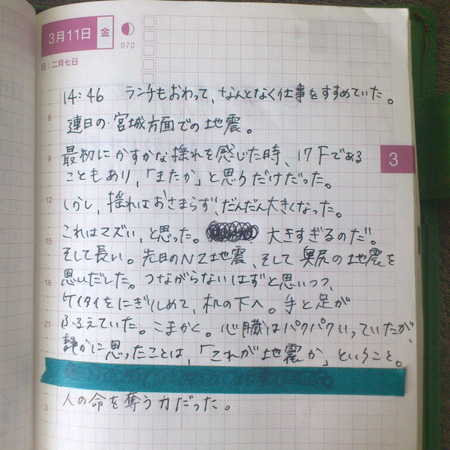 3月11日 金
070
旧:二月七日
14:46 ランチもおわって、なんとなく仕事をすすめていた。
6 連日の宮城方面での地震。
9 最初にかすかな揺れを感じた時、17Fである
3
こともあり、「またか」と思うだけだった。
12 しかし、揺れはおさまらず、だんだん大きくなった。
15 これはマズい、と思った。 大きすぎるのだ。
そして長い。先日のNZ地震、そして奥尻の地震を
18 思いだした。つながらないはずと思いつつ、
ケイタイをにぎりしめて、机の下へ。手と足が
21 ふるえていた。こまかと。心臓はバクバクいっていたが、
静かに思ったことは、「これが地震か」ということ。
3 人の命を奪う力だった。